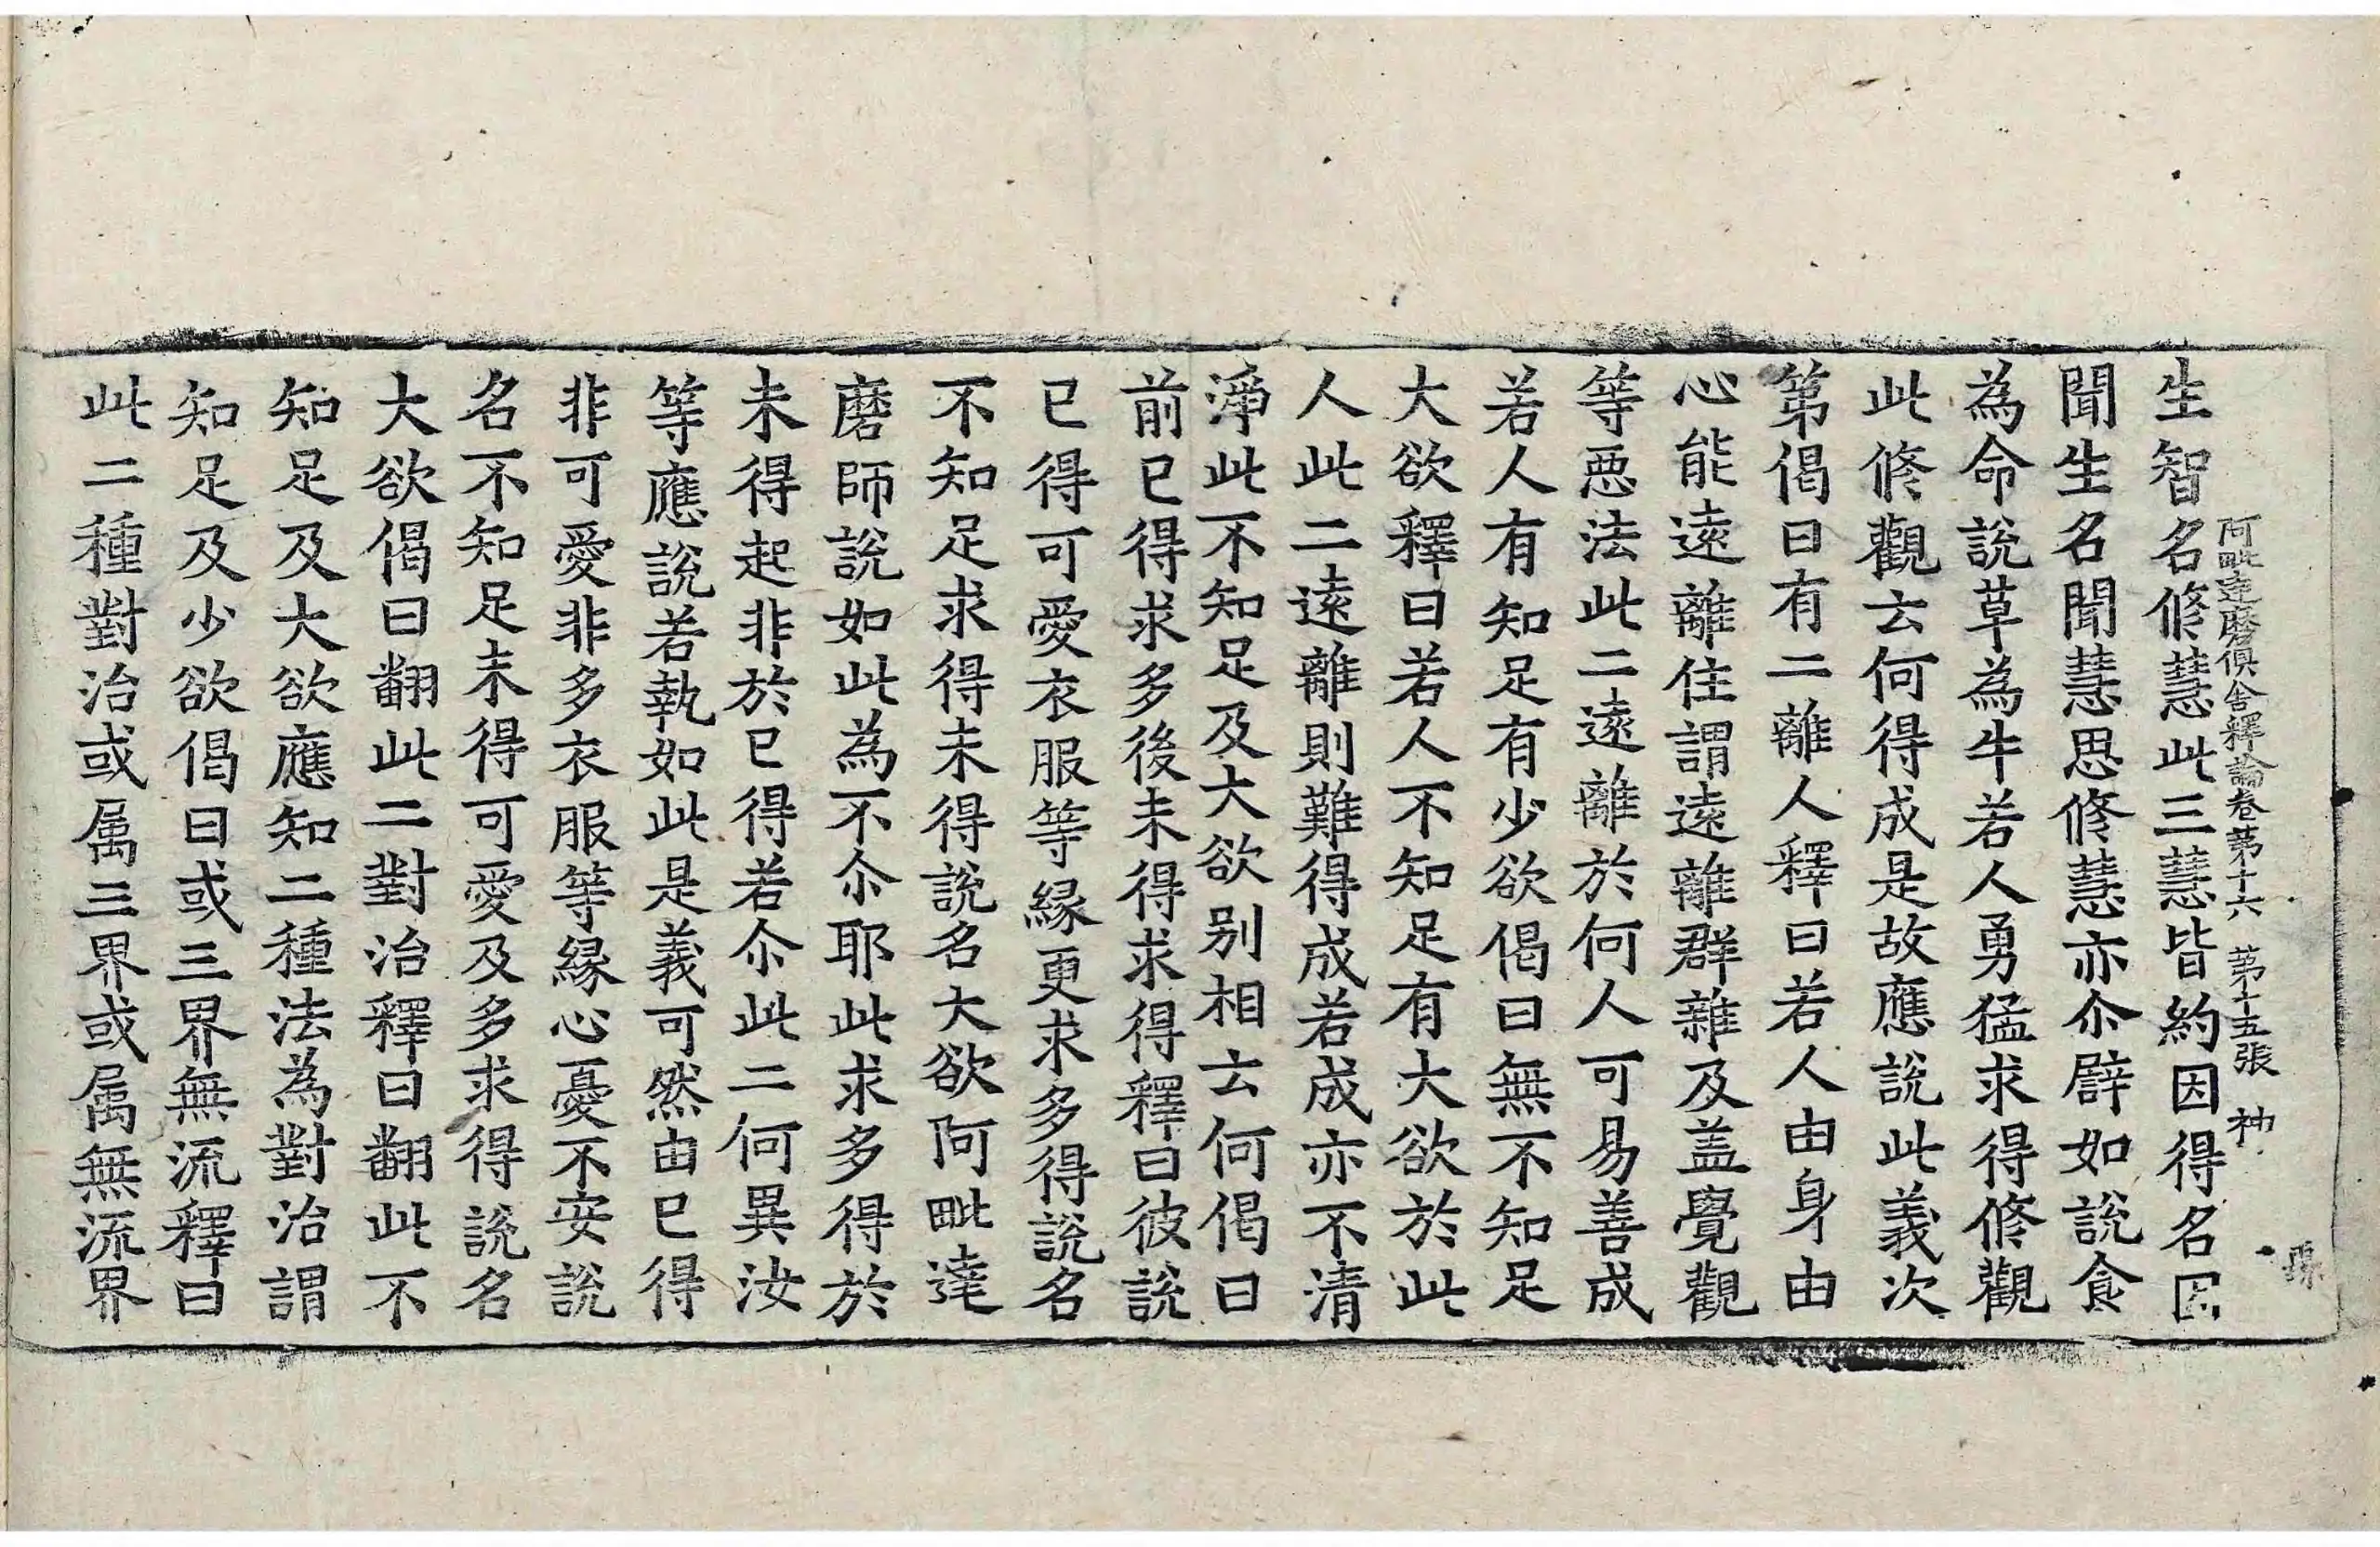 阿毗達磨俱舍釋論卷第十六 第十五張 神
生智名修慧此三慧皆約因得名因
聞生名聞慧思修慧亦尒辟如說食
為命說草為牛若人勇猛求得修觀
此修觀云何得成是故應說此義次
第偈曰有二離人釋曰若人由身由
心能遠離住謂遠離群雜及盖覺觀
等惡法此二遠離於何人可易善成
若人有知足有少欲偈曰無不知足
大欲釋曰若人不知足有大欲於此
人此二遠離則難得成若成亦不清
淨此不知足及大欲别相云何偈曰
前已得求多後未得求得釋曰彼說
已得可愛衣服等緣更求多得說名
不知足求得未得說名大欲阿毗達
磨師說如此為不尒耶此求多得於
未得起非於已得若尒此二何異汝
等應說若執如此是義可然由已得
非可愛非多衣服等緣心憂不安說
名不知足未得可愛及多求得說名
大欲偈曰翻此二對治釋曰翻此不
知足及大欲應知二種法為對治謂
知足及少欲偈曰或三界無流釋曰
此二種對治或属三界或属無流界